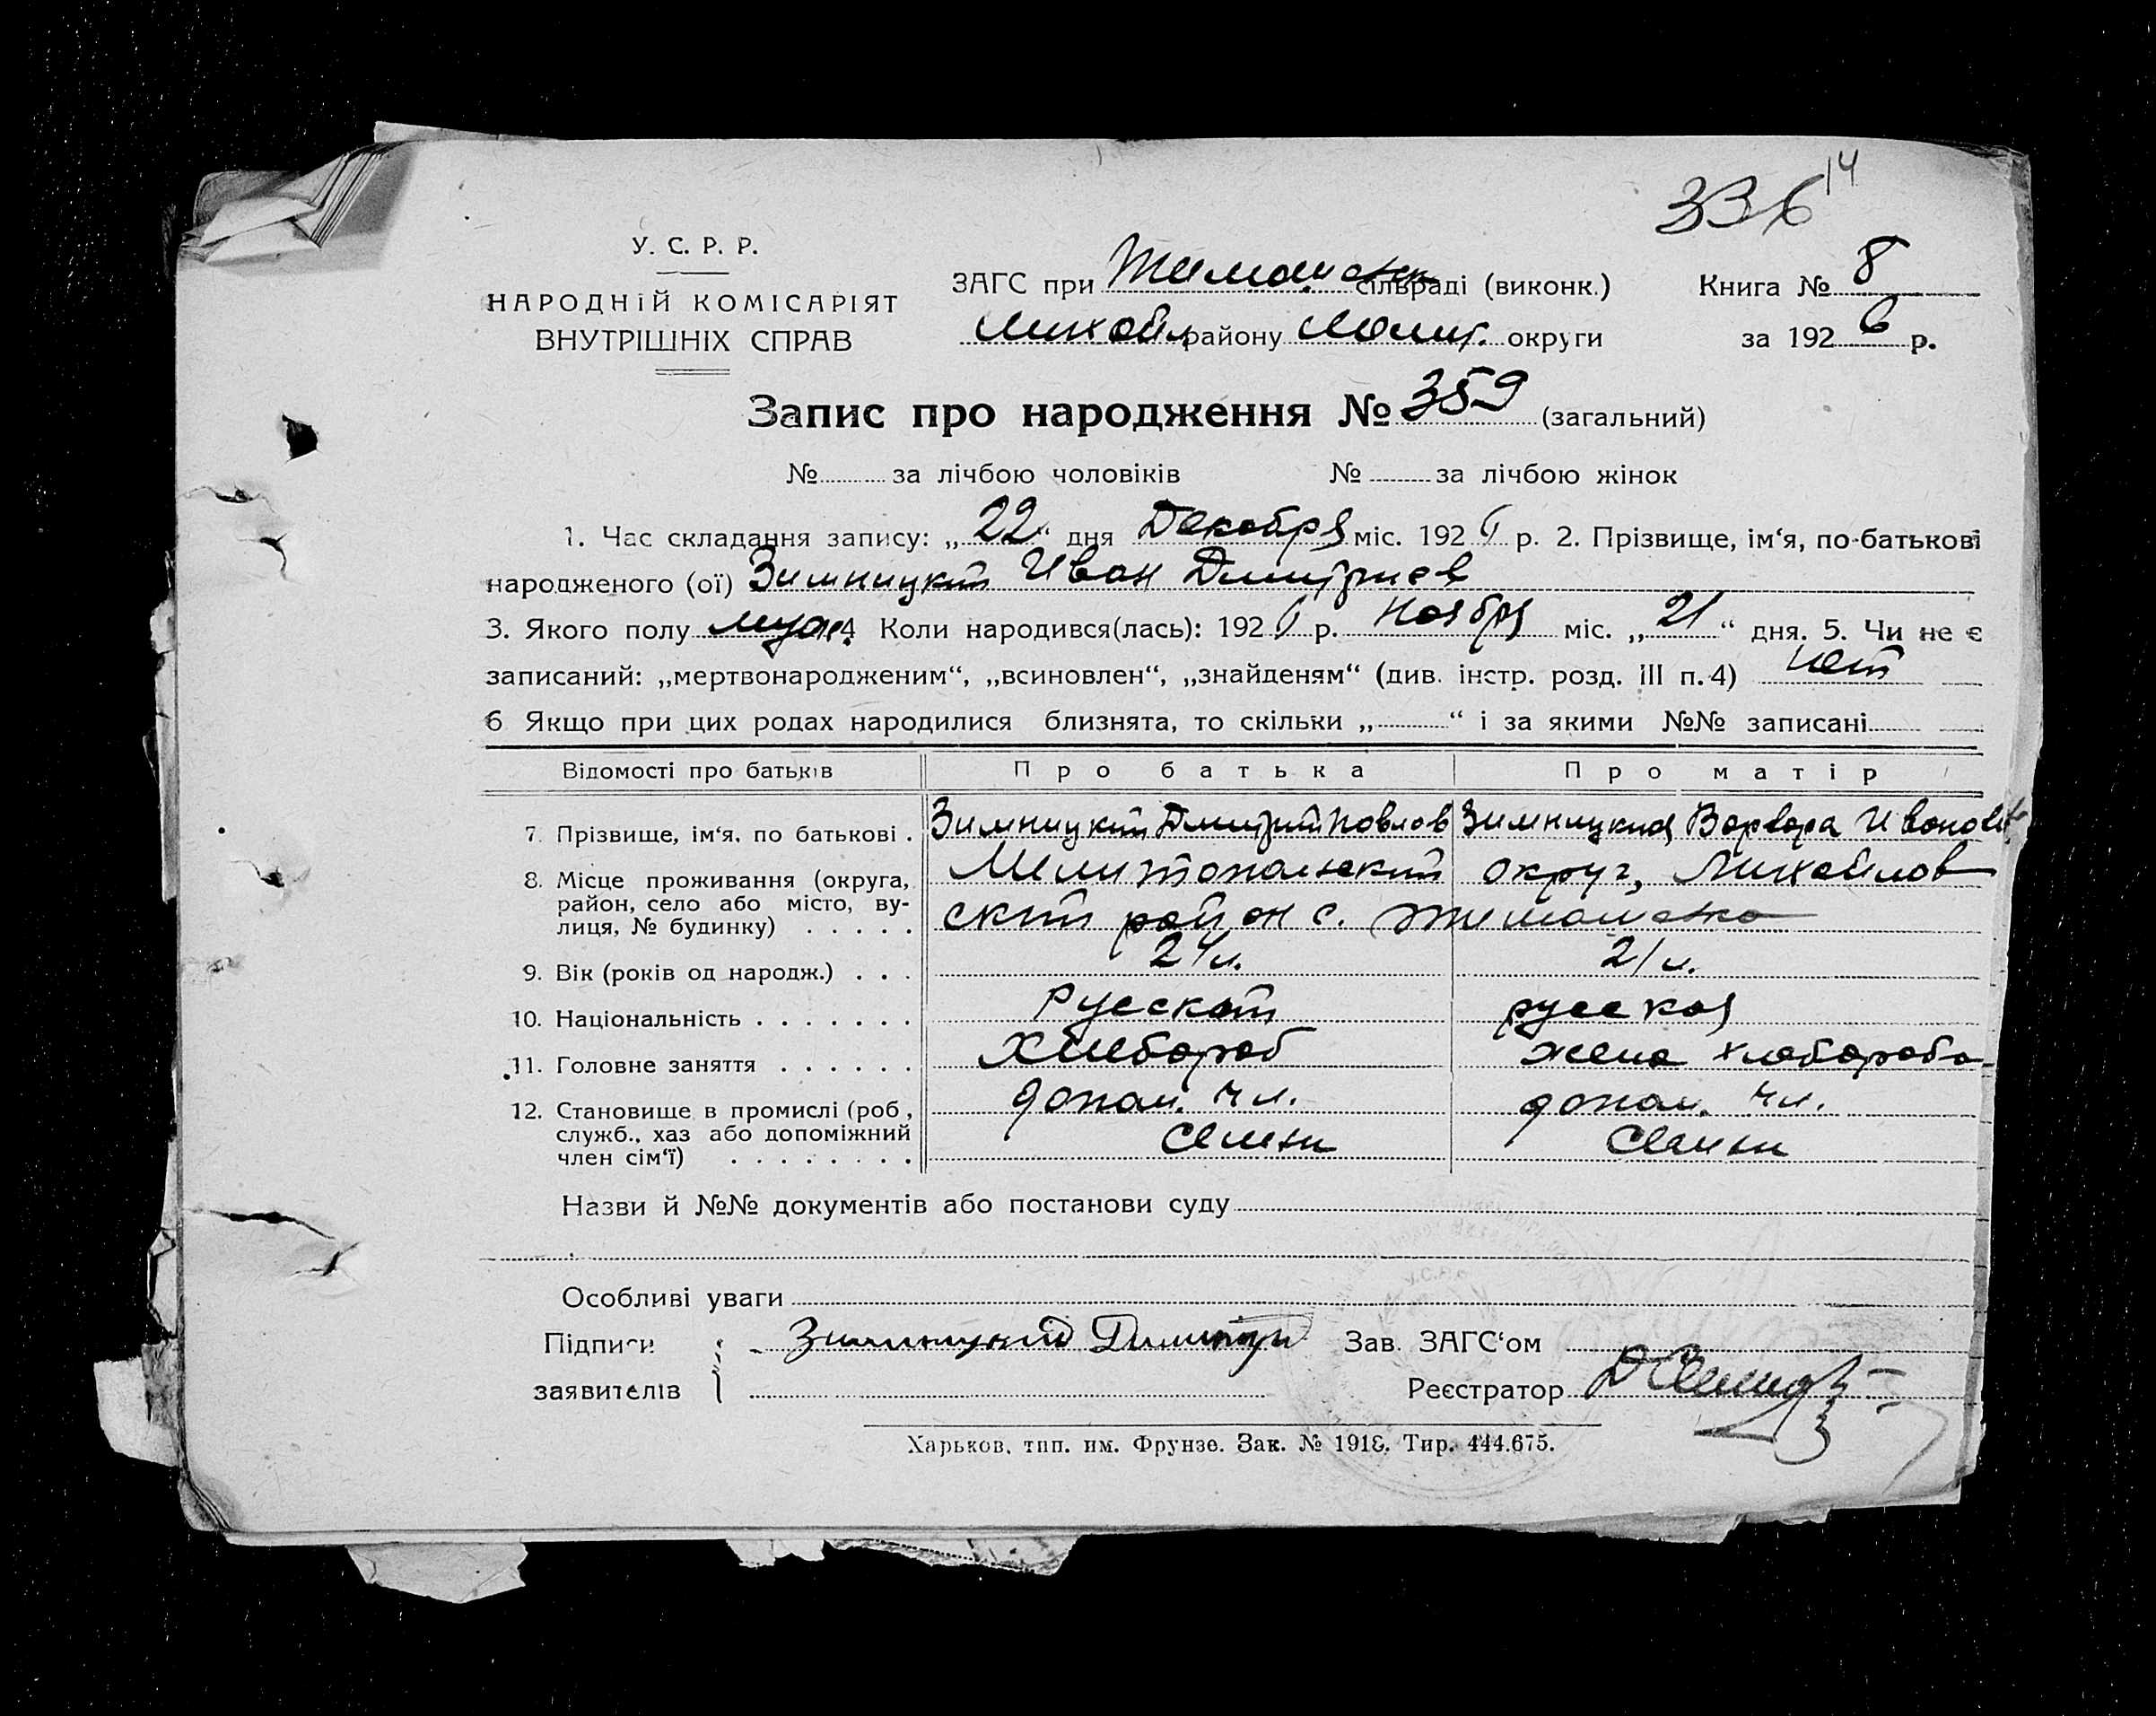 336 14
У. С. Р. Р.
НАРОДНІЙ КОМІСАРІЯТ
ВНУТРІШНІХ СПРАВ
ЗАГС при Тимошевск сільраді (виконк.) Книга № 8
Михайл району Мелит. округи за 1926 р.
Запис про народження № 359 (загальний)
№ за лічбою чоловіків № за лічбою жінок
1. Час складання запису: „22“ дня Декабря міс. 1926 р. 2. Прізвище, ім‘я, по-батькові
народженого (ої) Зимницкий Иван Дмитриев
3. Якого полу муж. 4 Коли народився(лась): 1926 р. Ноября міс. „21“ дня. 5. Чи не є
записаний: „мертвонародженим“, „всиновлен“, „знайденям“ (див. інстр. розд. III п. 4) нет
6 Якщо при цих родах народилися близнята, то скільки „ “ і за якими №№ записані
Відомості про батьків Про батька Про матір
7. Прізвище, ім‘я, по батькові . Зимницкий Дмитрий Павлов Зимницкая Варвара Иванов
8. Місце проживання (округа, район, село або місто, вулиця, № будинку) Мелитопольский округ, Михайлов
ский район с. Тимошевка
9. Вік (років од народж.) . . . 24 л. 21 л.
10. Національність . . . . . . . Русский русская
11. Головне заняття . . . . . . Хлебороб жена хлебороба
12. Становище в промислі (роб, служб., хаз або допоміжний член сім‘ї) . . . . . . . . допом. чл. семьи допом. чл. семьи
Назви й №№ документів або постанови суду
Особливі уваги
Підписи Зимницкий Дмитри Зав. ЗАГС‘ом
заявителів Реєстратор
Харьков, тип. им. Фрунзе. Зак. № 1918. Тир. 444.675.